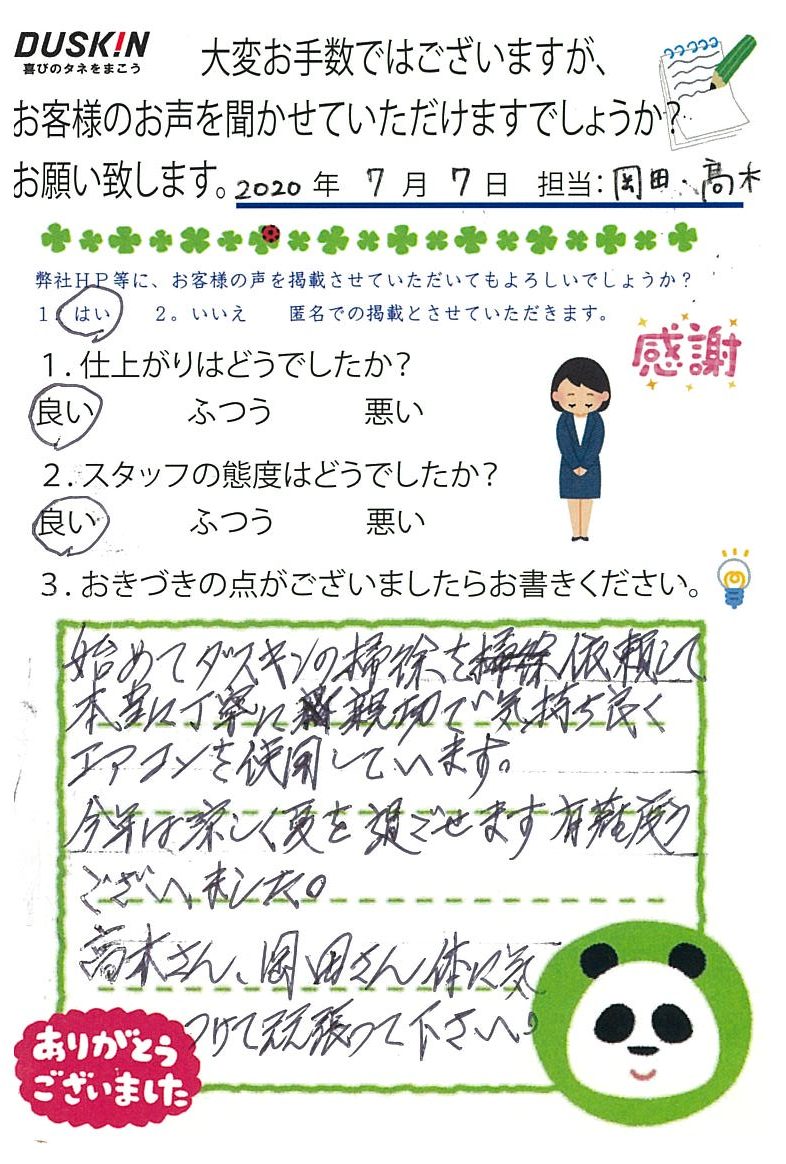 DUSKIN
喜びのタネをまこう
大変お手数ではございますが、
お客様のお声を聞かせていただけますでしょうか?
お願い致します。2020 年 7 月 7 日 担当：岡田・高木
弊社ＨＰ等に、お客様の声を掲載させていただいてもよろしいでしょうか？
１．はい　２。いいえ　匿名での掲載とさせていただきます。
感謝
１．仕上がりはどうでしたか？
良い　ふつう　悪い
２．スタッフの態度はどうでしたか？
良い　ふつう　悪い
３．おきづきの点がございましたらお書きください。
始めてダスキンの掃除を依頼して
本当に丁寧に親切で気持ち良く
エアコンを使用しています。
今年は涼しく夏を過ごせます有難度う
ございました。
高木さん、岡田さん体に気
つけて頑張って下さい。
ありがとう
ございました